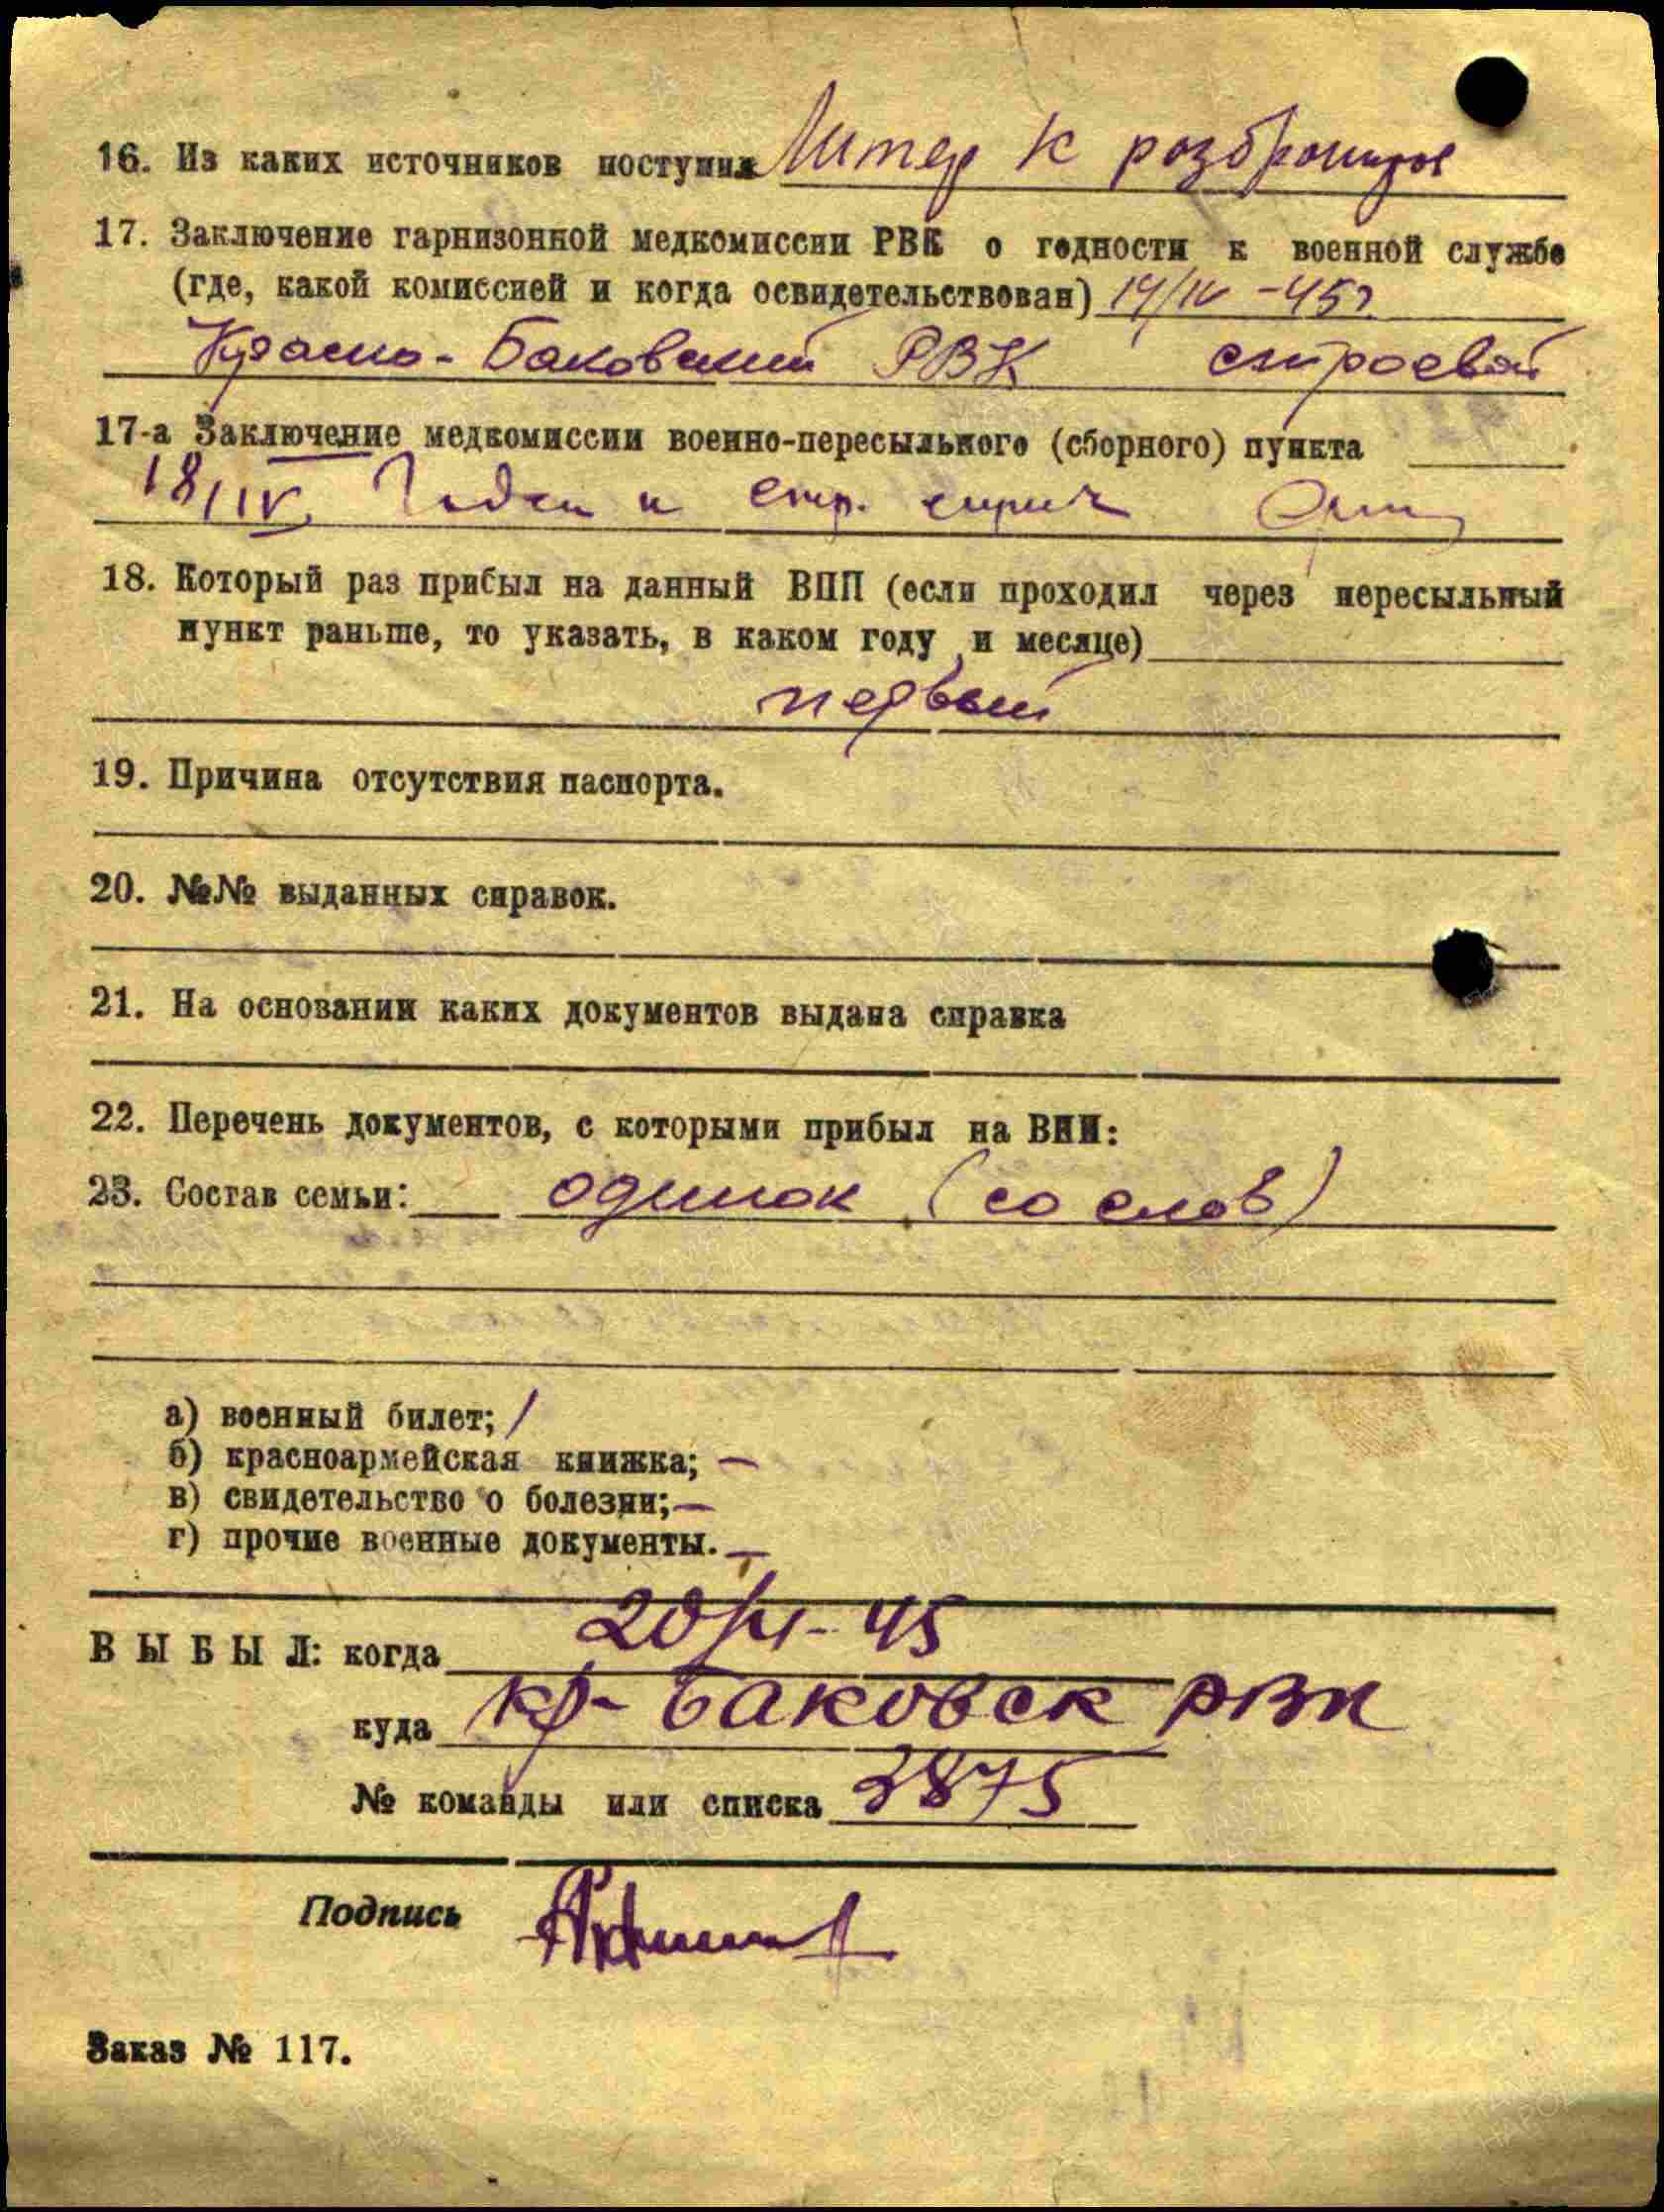 16. Из каких источников поступил Литер К розброниров
17. Заключение гарнизонной медкомиссии РВК о годности к военной службе
(где, какой комиссией и когда освидетельствован) 14/IV -45г.
Красно-Баковский РВК строевой
17-а Заключение медкомиссии военно-пересыльного (сборного) пункта
18/IV. Годен к стр.
18. Который раз прибыл на данный ВПП (если проходил через пересыльный
пункт раньше, то указать, в каком году и месяце)
первый
19. Причина отсутствия паспорта.
20. №№ выданных справок.
21. На основании каких документов выдана справка
22. Перечень документов, с которыми прибыл на ВПП:
23. Состав семьи: одинок (со слов)
а) военный билет; /
б) красноармейская книжка; —
в) свидетельство о болезни; —
г) прочие военные документы. —
ВЫБЫЛ: когда 20/VI-45
куда Кр-Баковск РВК
№ команды или списка 3875
Подпись
Заказ № 117.
ПАМЯТЬ НАРОДА